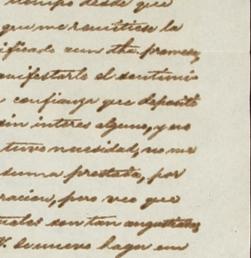 tiempo desde que
que me remitiese la
ificado aun tha promesa,
anifestarle el sentimio
confianza que depositó
sin interes alguno, y no
tuve necesidad, no me
suma prestada, por
racion, pero veo que
iales son tan angustiadas
V. de nuevo hagan em